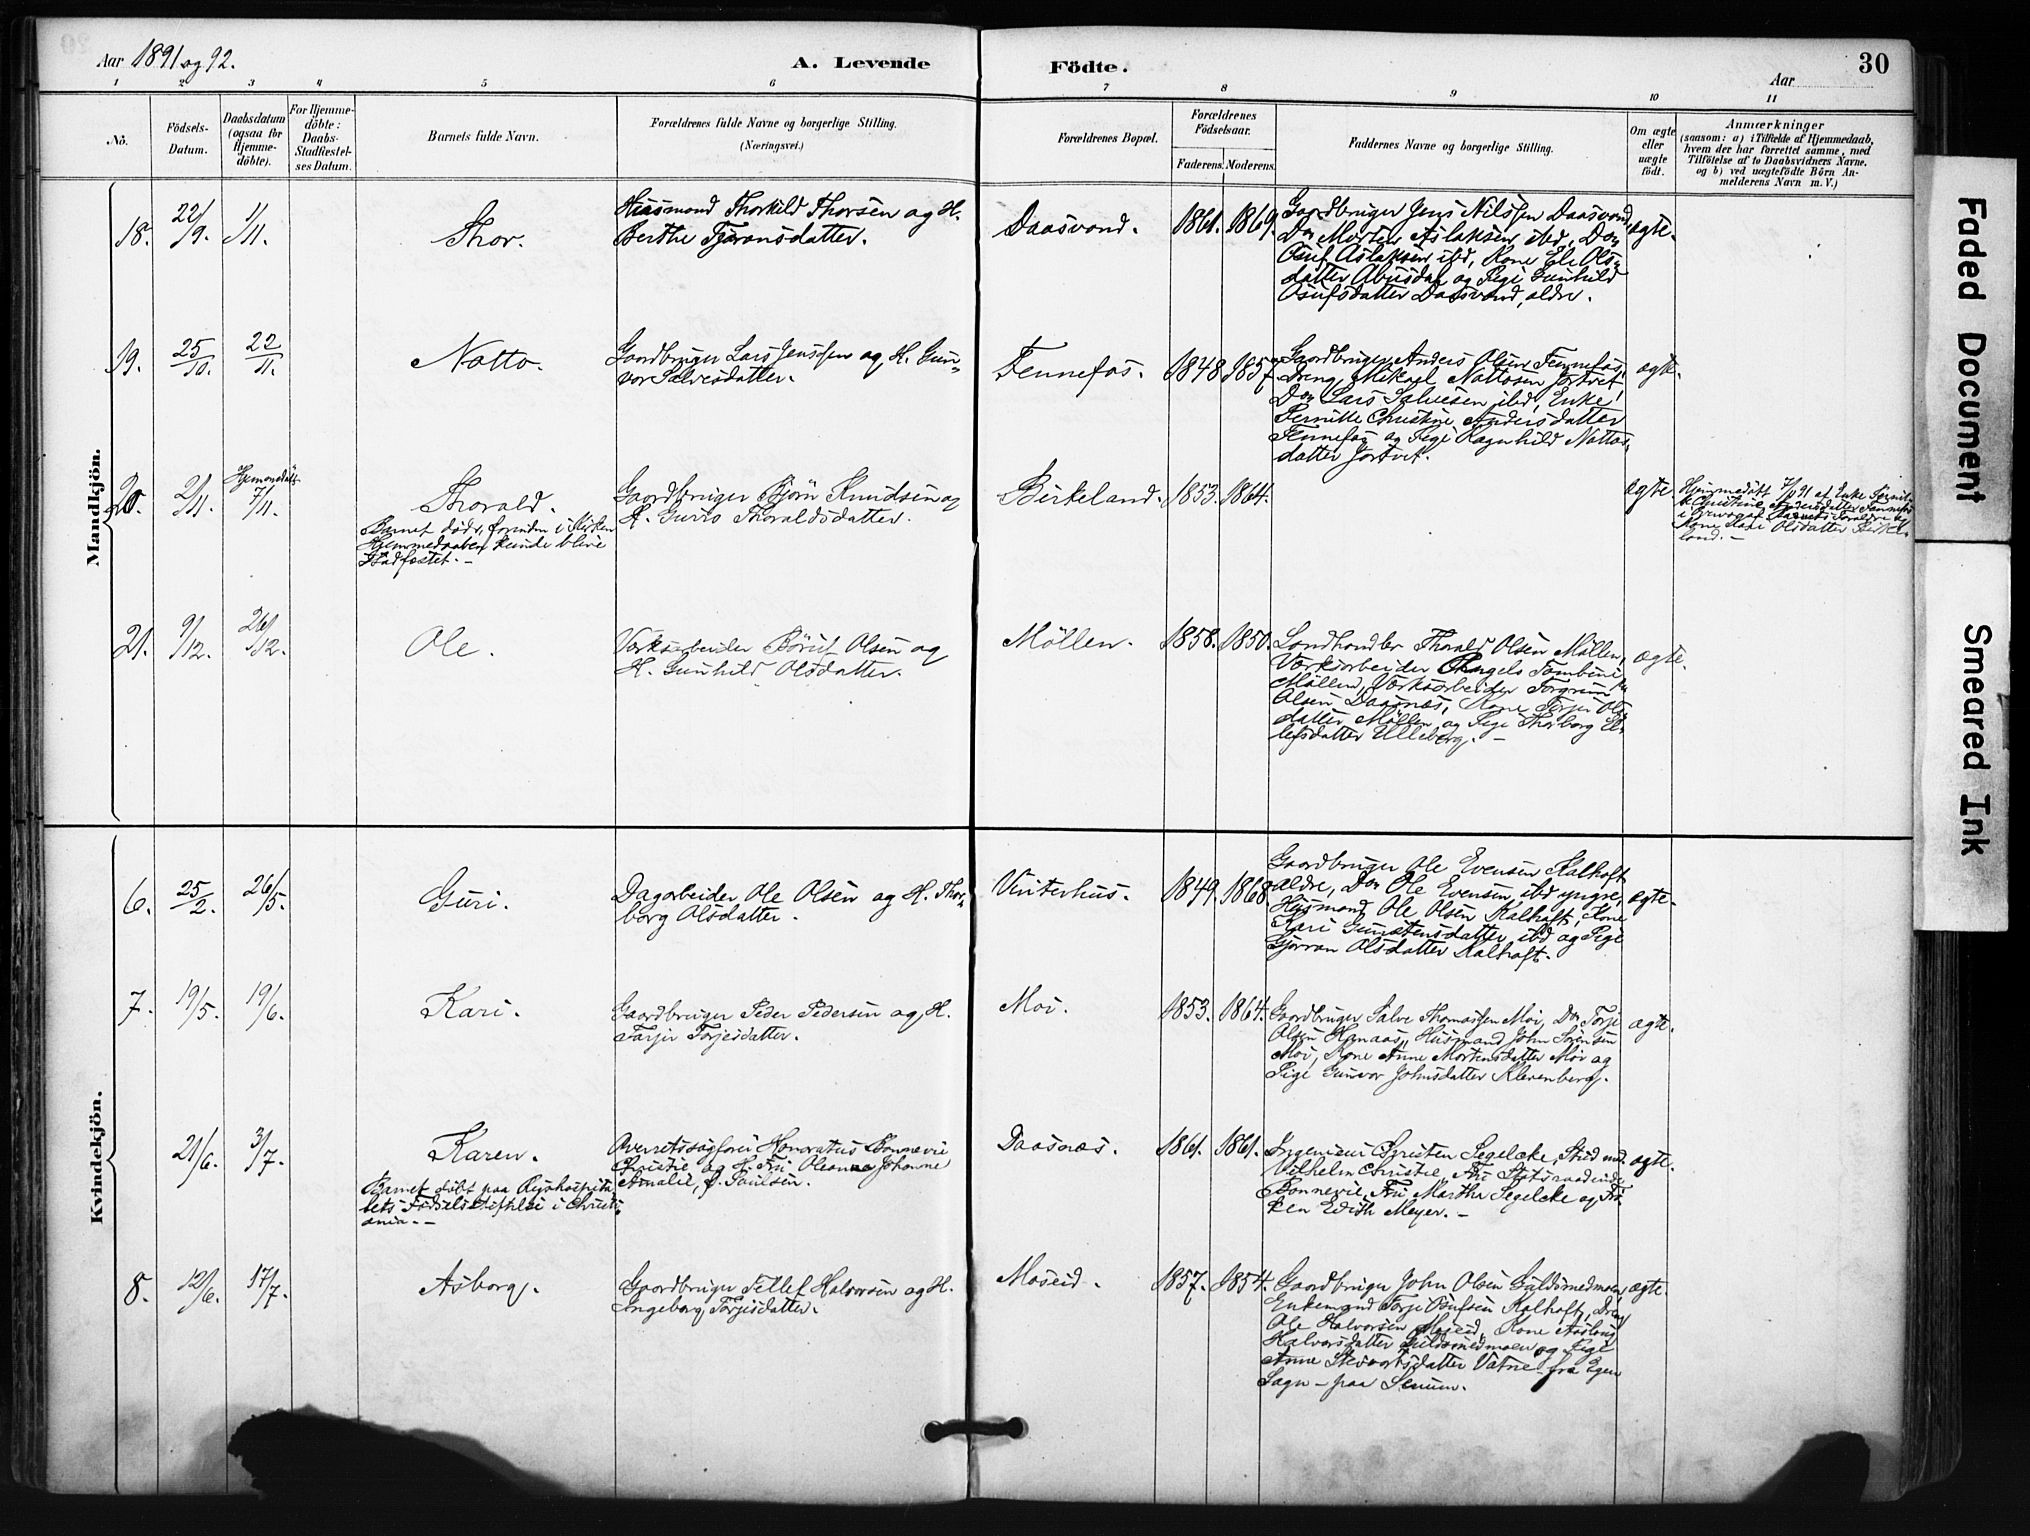 Aar 1891 og 92.
A. Levende Födte.
Aar
30
1 2 3 4 5 6 7 8 9 10 11
No.
Födsels-
Datum.
Daabsdatum
(ogsaa for
Hjemme-
döbte).
For Hjemme-
döbte:
Daabs-
Stadfæstel-
ses Datum.
Barnets fulde Navn.
Forældrenes fulde Navne og borgerlige Stilling.
(Næringsvei.)
Forældrenes Bopæl.
Forældrenes
Födselsaar.
Faderens. Moderens.
Faddernes Navne og borgerlige Stilling.
Om ægte
eller
uægte
födt.
Anmærkninger
(saasom: a) i Tilfælde af Hjemmedaab,
hvem der har forrettet samme, med
Tilföielse af to Daabsvidners Navne,
og b) ved uægtefödte Börn An-
melderens Navn m. V.)
Mandkjön.
18.
22/9.
1/11.
Thor.
Husmand Thorkild Thorsen og H.
Berthe Tjöransdatter.
Daasvand.
1861.
1869.
Gaardbruger Jens Nilssen Daasvand,
Do Morten Aslaksen ibd, Do
Osuf Aslaksen ibd, Kone Eli Ols-
datter Abusdal og Pige Gunhild
Osufsdatter Daasvand, ældre.
ægte.
19.
25/10.
22/11.
Natto.
Gaardbruger Lars Jenssen og H. Gun-
vor Salvesdatter.
Fennefos.
1848
1857
Gaardbruger Anders Olsen Fennefos,
Dreng Mikael Nattosen Jortvet
Do Lars Salvesen ibd, Enke
Pernille Christine Andersdatter
Fennefos og Pige Ragnhild Nattos-
datter Jortvet.
ægte.
20.
2/11.
Hjemmedöbt
7/11.
Thorald.
Barnet döde, forinden i Kirken
Hjemmedaaben kunde blive
stadfæstet. -
Gaardbruger Björn Knudsen og
H. Gurro Thoraldsdatter.
Birkeland.
1853.
1864.
ægte.
Hjemmedöbt 7/11 91 af Enke Pernil-
le Christine Andersdatter Fennefos
i Nærvær af Barnets Forældre og
Kone Kari Olsdatter Birke-
land. -
21.
9/12.
26/12.
Ole.
Værksarbeider Börut Olsen og
H. Gunhild Olsdatter.
Möllen.
1858.
1850.
Landhandler Thorald Olsen Möllen,
Værksarbeider
Möllen, Værksarbeider Torgrim
Olsen Daasnæs, Kone Torjer Ols-
datter Möllen og Pige Thorborg El-
lefsdatter Ulleberg. -
ægte.
Kvindekjön.
6.
25/2.
26/5.
Guri.
Dagarbeider Ole Olsen og H. Thor-
borg Olsdatter.
Vinterhus.
1849.
1868.
Gaardbruger Ole Evensen Kalhaft
ældre, Do Ole Evensen ibd yngre,
Husmand Ole Olsen Kalhaft, Kone
Kari Gunstensdatter ibd og Pige
Gjöran Olsdatter Kalhaft.
ægte.
7.
19/5.
19/6.
Kari.
Gaardbruger Peder Pedersen og H.
Torjer Torjesdatter.
Moi.
1853.
1864.
Gaardbruger Salve Thomassen Moi, Do Torje
Olsen Hanaas, Husmand John Sörensen
Moi, Kone Anne Mortensdatter Moi og
Pige Gunvor Johnsdatter Klevenberg.
ægte.
21/6.
3/7.
Karen.
Barnet döbt paa Rigshospita-
lets Födselsstiftelse i Christi-
ania. -
Overretssagförer Honoratus Bonnevie
Christie og H. Fru Oleanna Johanne
Amalie, f. Paulsen.
Daasnæs.
1861.
1861.
Ingenieur Christen Segelcke, Stud. med.
Vilhelm Christie, Fru Statsraadinde
Bonnevie, Fru Marthe Segelcke og Frö-
ken Edith Meyer. -
ægte.
8.
12/6.
17/7.
Asborg.
Gaardbruger Tellef Halvorsen og H.
Ingeborg Torjesdatter.
Moseid.
1857.
1854.
Gaardbruger John Olsen Guldsmedmoen,
Enkemand Torje Osufsen Kalhaft, Dreng
Ole Halvorsen Moseid, Kone Aasborg
Halvorsdatter Guldsmedmoen og Pige
Anne Stevortsdatter Vatne - fra Egen
Sogn - paa Senum.
ægte.
Faded Document
Smeared Ink